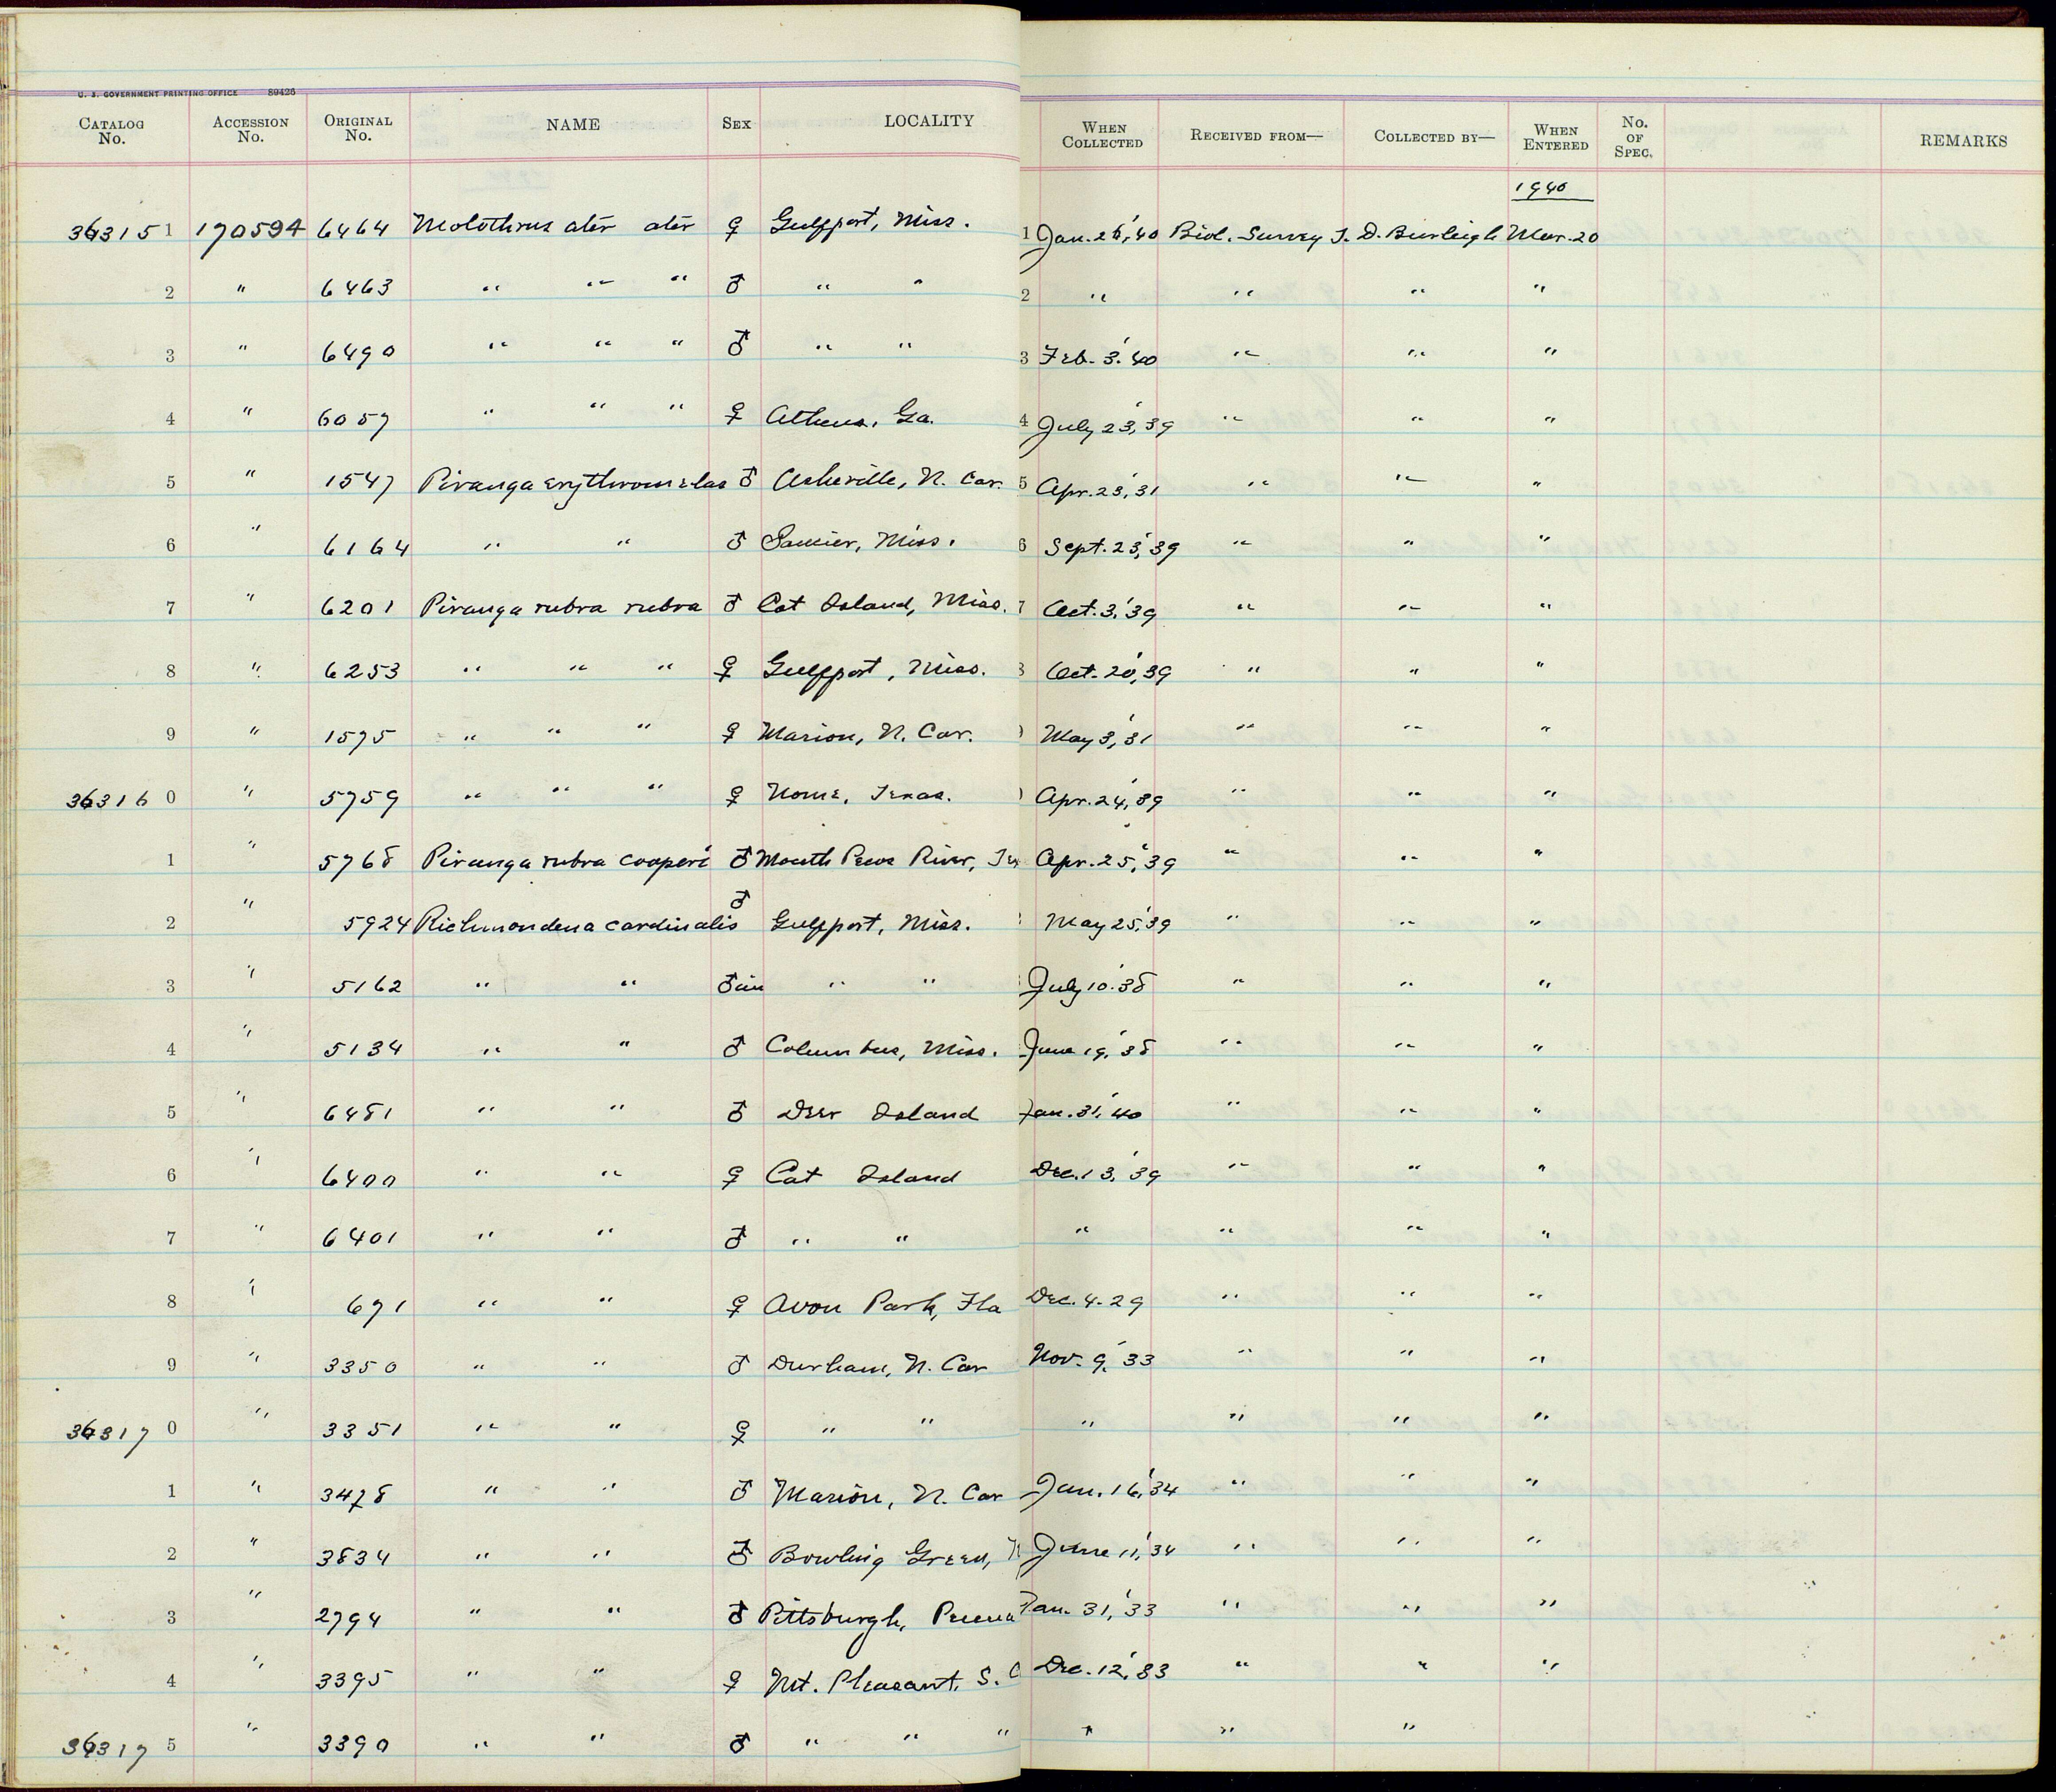 U. S. GOVERNMENT PRINTING OFFICE 89426
CATALOG No. ACCESSION No. ORIGINAL No. NAME SEX LOCALITY WHEN COLLECTED RECEIVED FROM— COLLECTED BY— WHEN ENTERED No. OF SPEC. REMARKS
1940
363151 170594 6464 Molothrus ater ater ♀ Gulfport, Miss. 1 Jan. 26,'40 Biol. Survey T. D. Burleigh Mar. 20
2 " 6463 " " " ♂ " " 2 " " " "
3 " 6490 " " " ♂ " " 3 Feb. 3.'40 " " "
4 " 6057 " " " ♀ Athens, Ga. 4 July 23,'39 " " "
5 " 1547 Piranga erythromelas ♂ Asheville, N. Car. 5 Apr. 23,'31 " " "
6 " 6164 " " ♂ Saucier, Miss. 6 Sept. 23,'39 " " "
7 " 6201 Piranga rubra rubra ♂ Cat Island, Miss. 7 Oct. 3,'39 " " "
8 " 6253 " " " ♀ Gulfport, Miss. 8 Oct. 20,'39 " " "
9 " 1575 " " " ♀ Marion, N. Car. May 3,'31 " " "
363160 " 5759 " " " ♀ Nome, Texas. Apr. 24,'39 " " "
1 " 5768 Piranga rubra cooperi ♂ Mouth Pecos River, Tex Apr. 25,'39 " " "
2 " 5924 Richmondena cardinalis ♂ Gulfport, Miss. May 25,'39 " " "
3 " 5162 " " ♂ im " " July 10.'38 " " "
4 " 5134 " " ♂ Columbus, Miss. June 19,'38 " " "
5 " 6481 " " ♂ Deer Island Jan. 31,'40 " " "
6 " 6400 " " ♀ Cat Island Dec. 13,'39 " " "
7 " 6401 " " ♂ " " " " " "
8 " 671 " " ♀ Avon Park, Fla Dec. 4-29 " " "
9 " 3350 " " ♂ Durham, N. Car Nov. 9,'33 " " "
363170 " 3351 " " ♀ " " " " " "
1 " 3478 " " ♂ Marion, N. Car Jan. 16,'34 " " "
2 " 3834 " " ♂ Bowling Green, June 11,'34 " " "
3 " 2794 " " ♂ Pittsburgh, Penna Jan. 31,'33 " " "
4 " 3395 " " ♀ Mt. Pleasant, S. C Dec. 12,'33 " " "
363175 " 3390 " " ♂ " " " " " "